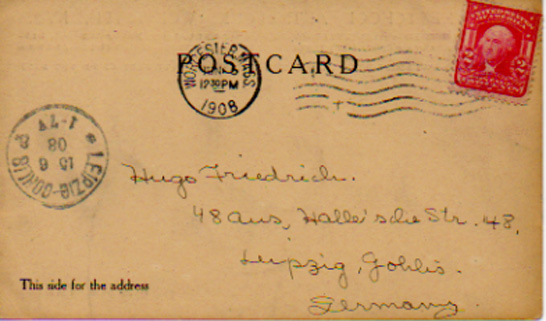 UNITED STATES
OF AMERICA
2 2
POST CARD
WORCESTER, MASS
12 30 PM
1908
LEIPZIG-GOHLIS
15 6
08
1-7 V
Hugo Friedrich.
48 aus, Halle'sche Str. 48,
Leipzig, Gohlis.
Germany.
This side for the address